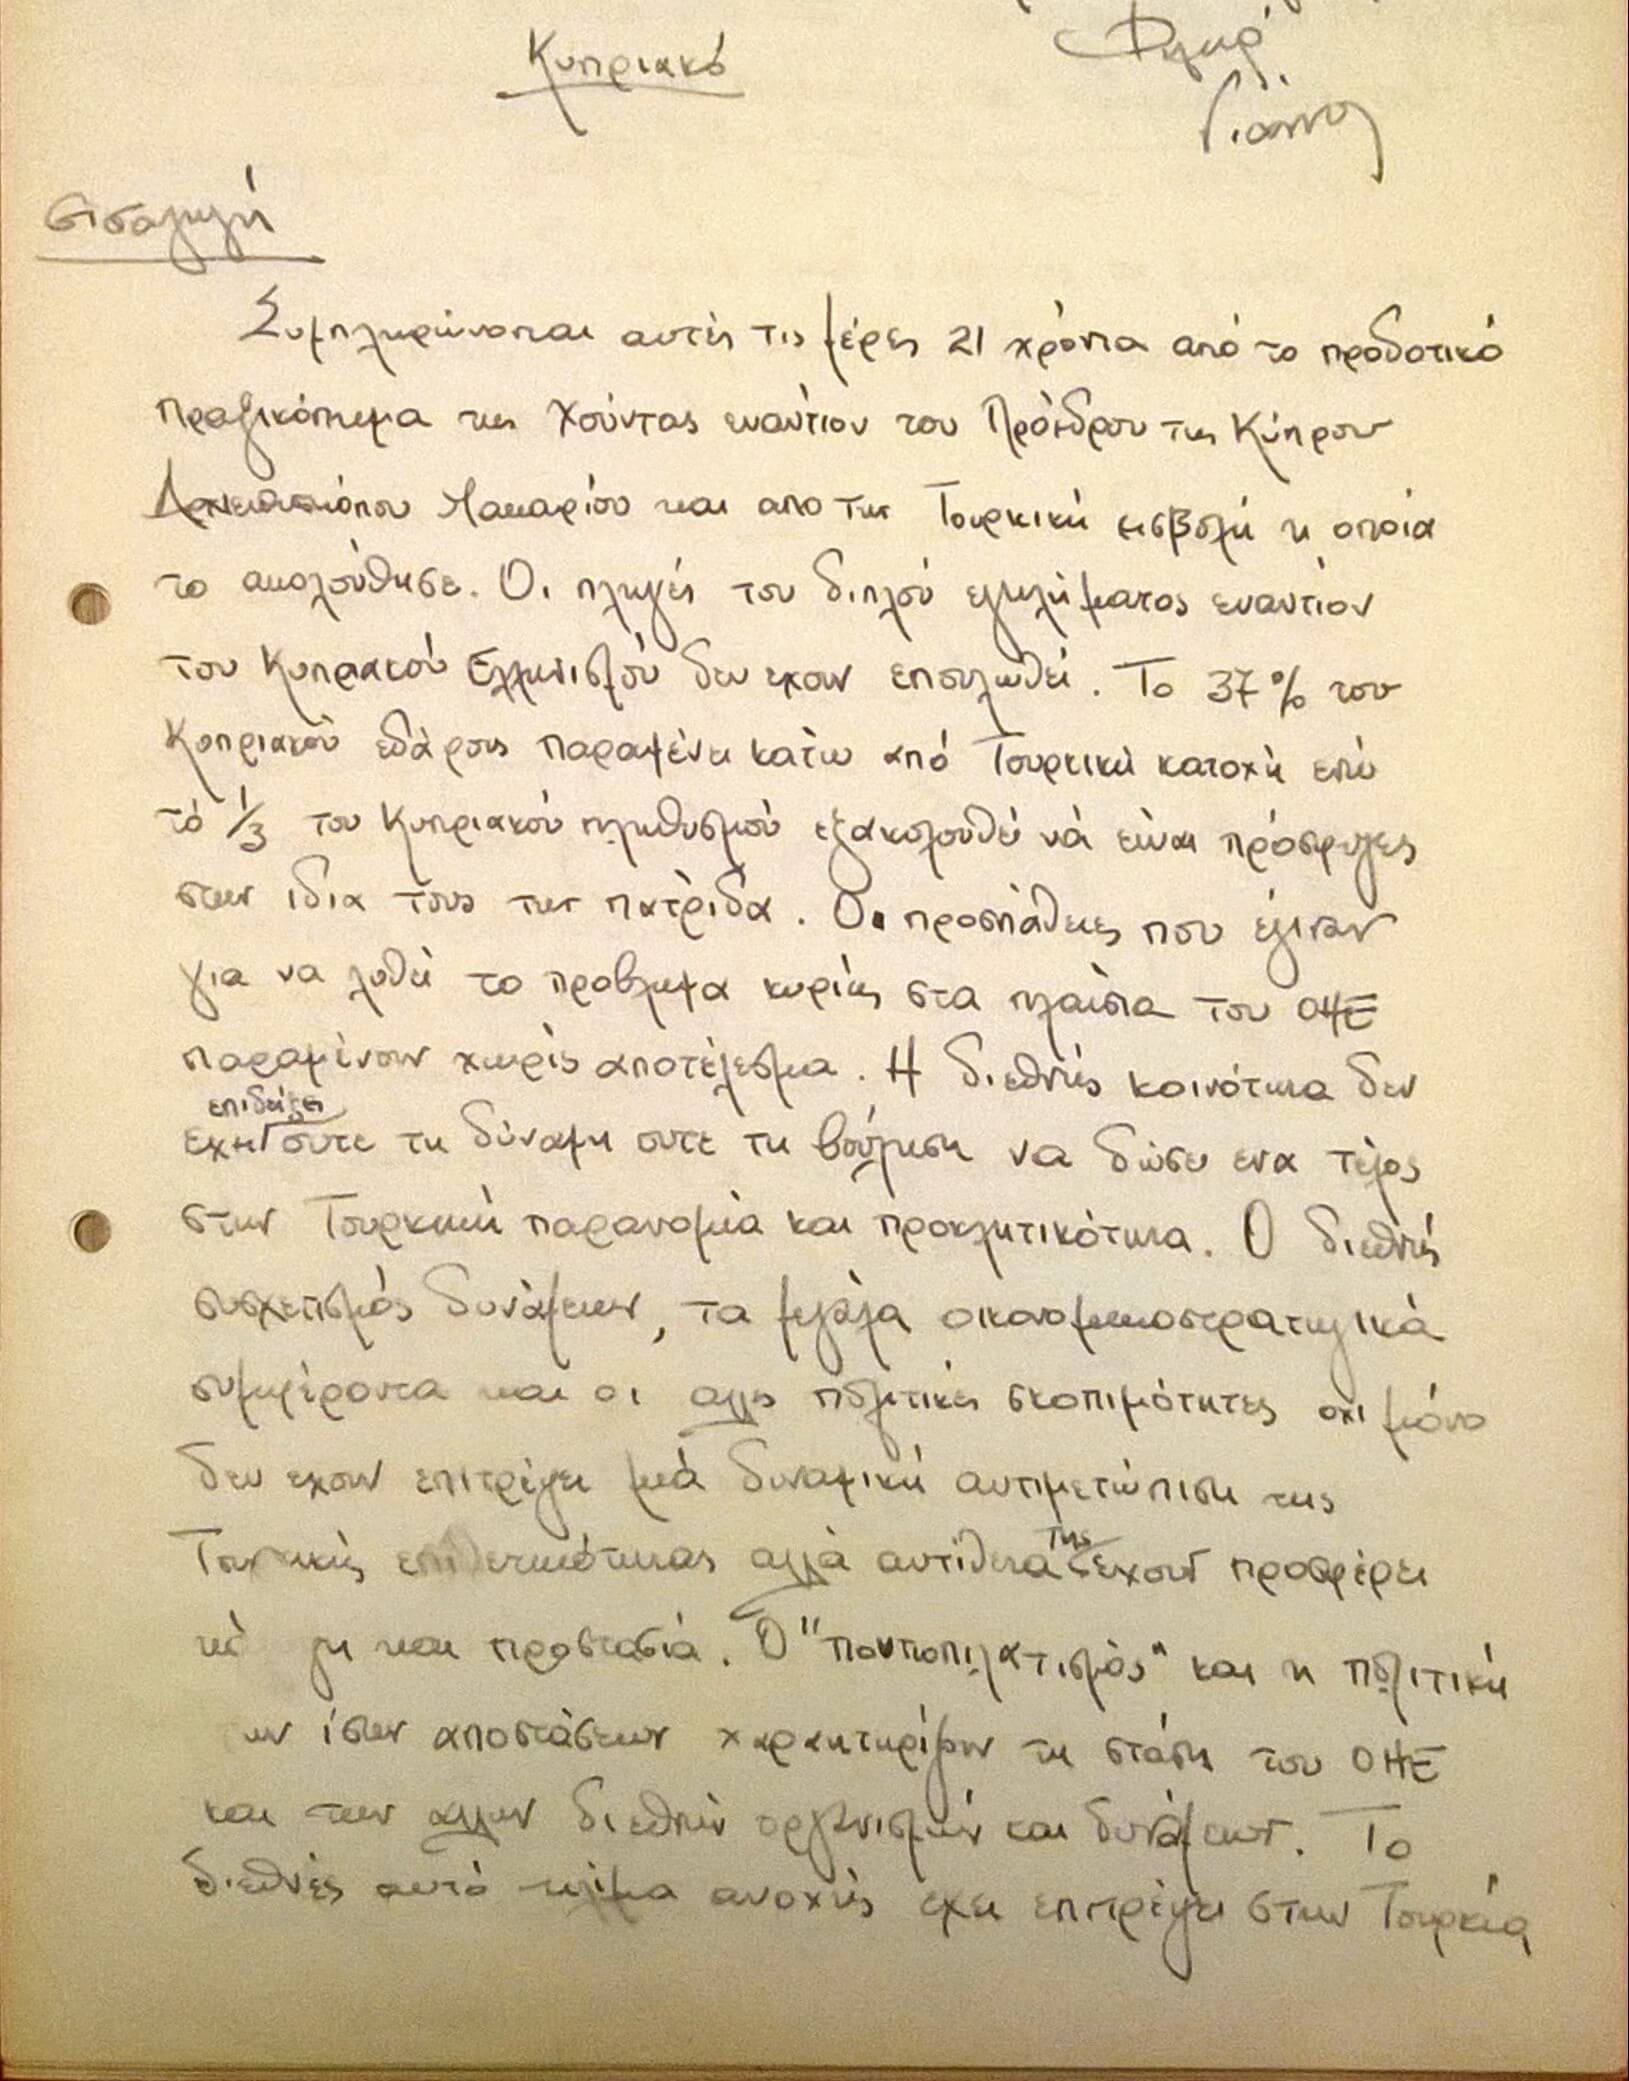 Κυπριακό
Γιάννη
εισαγωγή
Συμπληρώνονται αυτές τις μέρες 21 χρόνια από το προδοτικό
πραξικόπημα της Χούντας εναντίον του Πρόεδρου της Κύπρου
Αρχιεπισκόπου Μακαρίου και απο την Τουρκική εισβολή η οποία
το ακολούθησε. Οι πληγές του διπλού εγκλήματος εναντίον
του Κυπριακού Ελληνισμού δεν εχουν επουλωθεί. Το 37% του
Κυπριακού εδάφους παραμένει κάτω από Τουρκική κατοχή ενώ
τό 1/3 του Κυπριακού πληθυσμού εξακολουθεί νά είναι πρόσφυγες
στην ιδια τους την πατρίδα. Οι προσπάθειες που έγιναν
για να λυθεί το προβλημα κυρίως στα πλαίσια του ΟΗΕ
παραμένουν χωρίς αποτέλεσμα. Η διεθνής κοινότητα δεν
επιδείξει
εχει ουτε τη δύναμη ουτε τη βούληση να δώσει ενα τέλος
στην Τουρκική παρανομία και προκλητικότητα. Ο διεθνής
συσχετισμός δυνάμεων, τα μεγάλα οικονομικοστρατηγικά
συμφέροντα και οι αλλες πολιτικές σκοπιμότητες οχι μόνο
δεν εχουν επιτρέψει μιά δυναμική αντιμετώπιση της
Τουρκικής επιθετικότητας αλλά αντίθετα της εχουν προσφέρει
και προστασία. Ο "ποντιοπιλατισμός" και η πολιτική
ων ίσων αποστάσεων χαρακτηρίζουν τη στάση του ΟΗΕ
και των αλλων διεθνών οργανισμών και δυνάμεων. Το
διεθνές αυτό κλίμα ανοχής εχει επιτρέψει στην Τουρκία